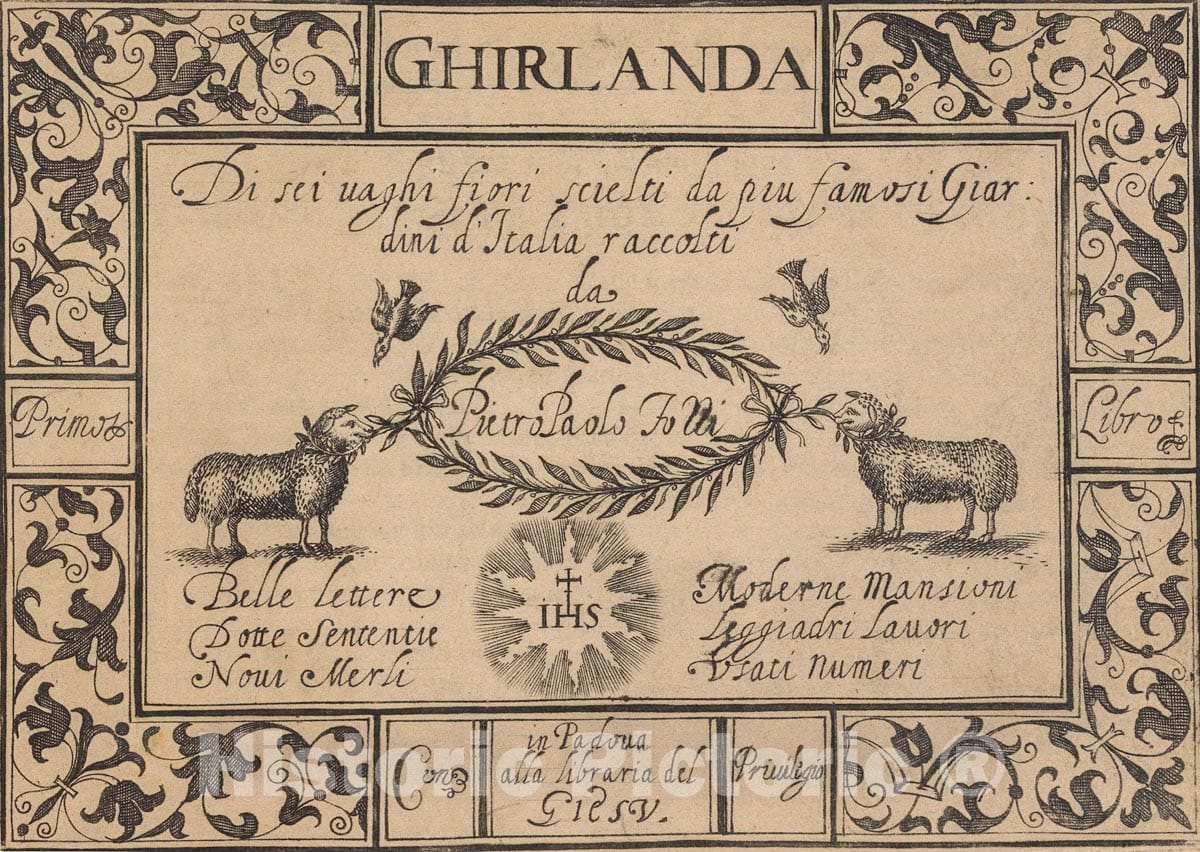 GHIRLANDA
Di sei uaghi fiori scielti da piu famosi Giar:
dini d'Italia raccolti
da
Pietro Paolo Tozzi
Primo
Libro
Belle lettere
Dotte Sententie
Noui Merli
IHS
Moderne Mansioni
Leggiadri Lauori
Vsati Numeri
Con
in Padoua
alla libraria del
GIesV.
Priuilegio
Historic Pictoric ®